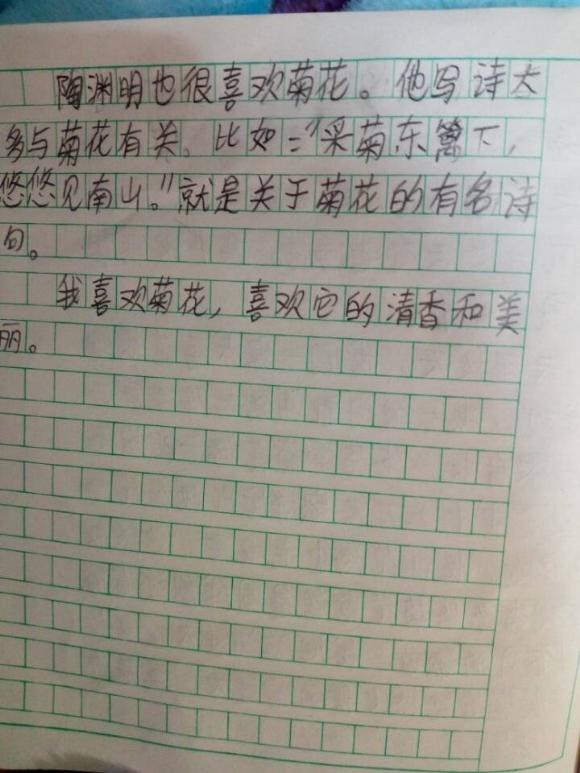 陶渊明也很喜欢菊花。他写诗大
多与菊花有关。比如:"采菊东篱下,
悠悠见南山。"就是关于菊花的有名诗
句。
我喜欢菊花,喜欢它的清香和美
丽。